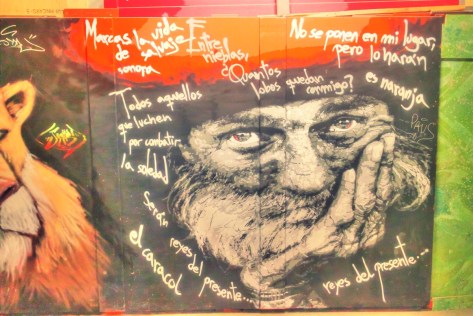 Marcas la vida
de salvaje
sonora
E
Entre
nieblas,
¿Quantos
lobos quedan
conmigo?
No se ponen en mi lugar,
pero lo harán
es naranja
Todos aquellos
que luchen
por combatir
la soledad
Serán
reyes del presente...
el caracol
reyes del presente...